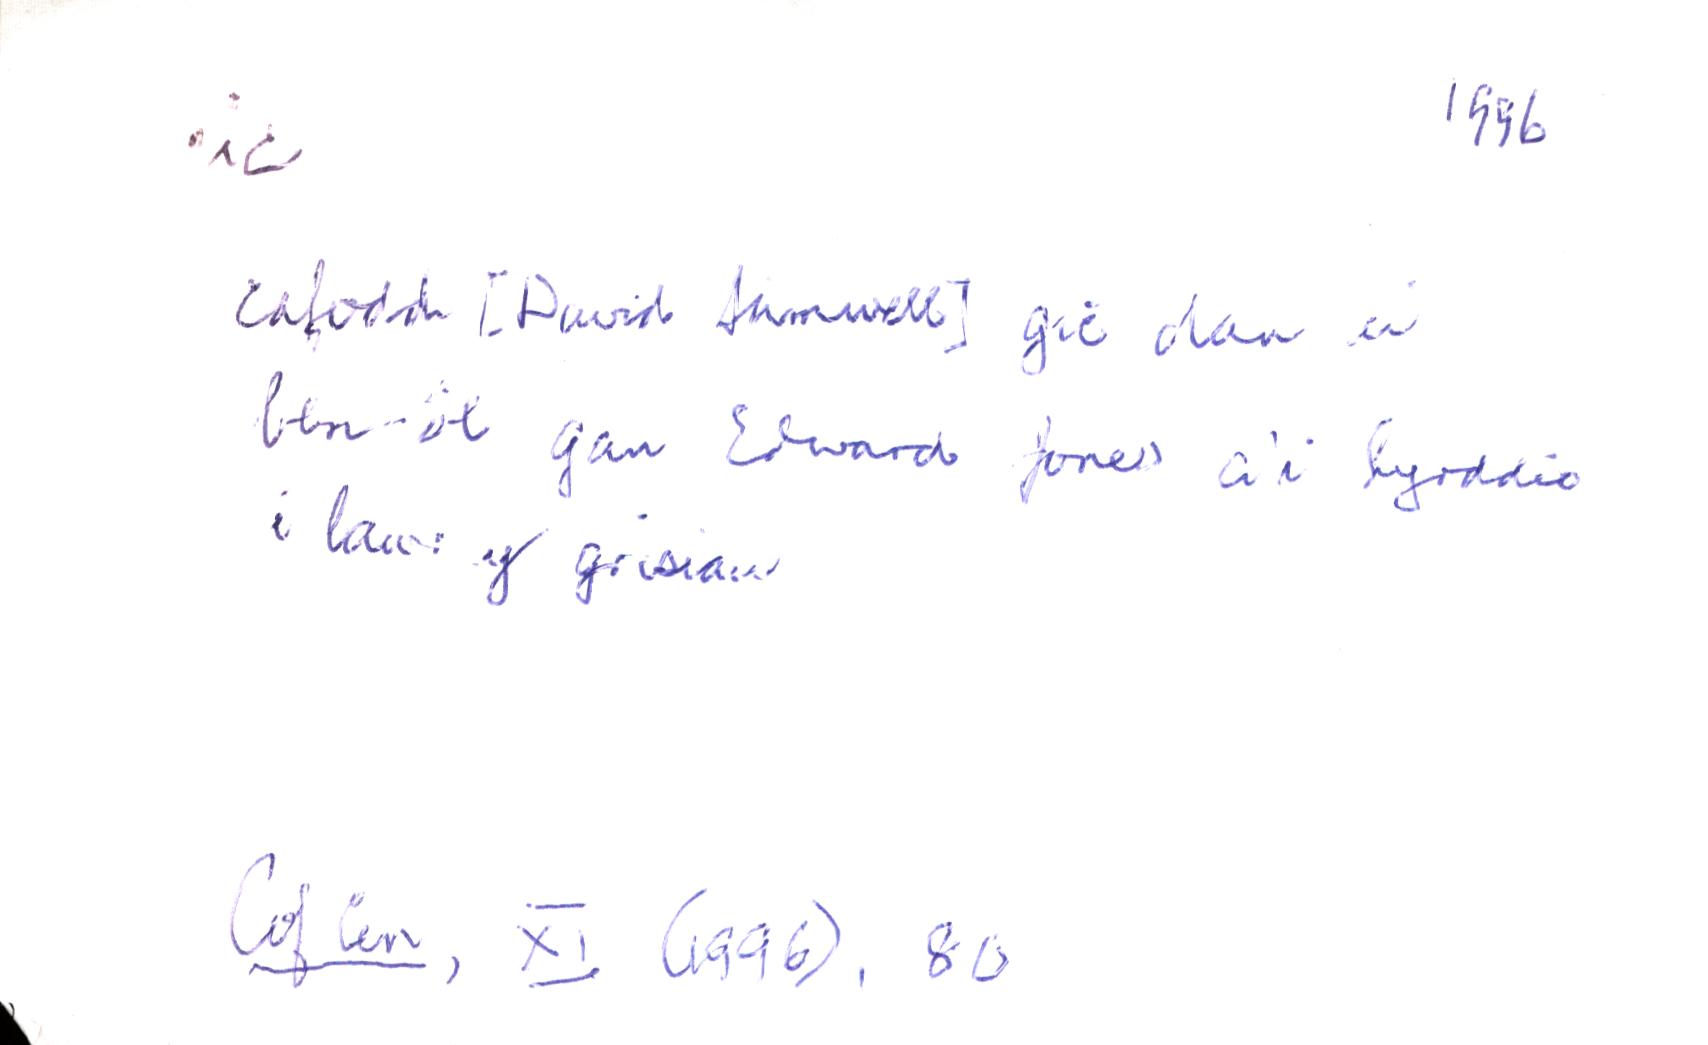 cic
1996
cafodd [David Samwell] gic dan ei
ben-ôl gan Edward Jones a'i hyrddio
i lawr y grisiau
Cof Cen, XI (1996), 80